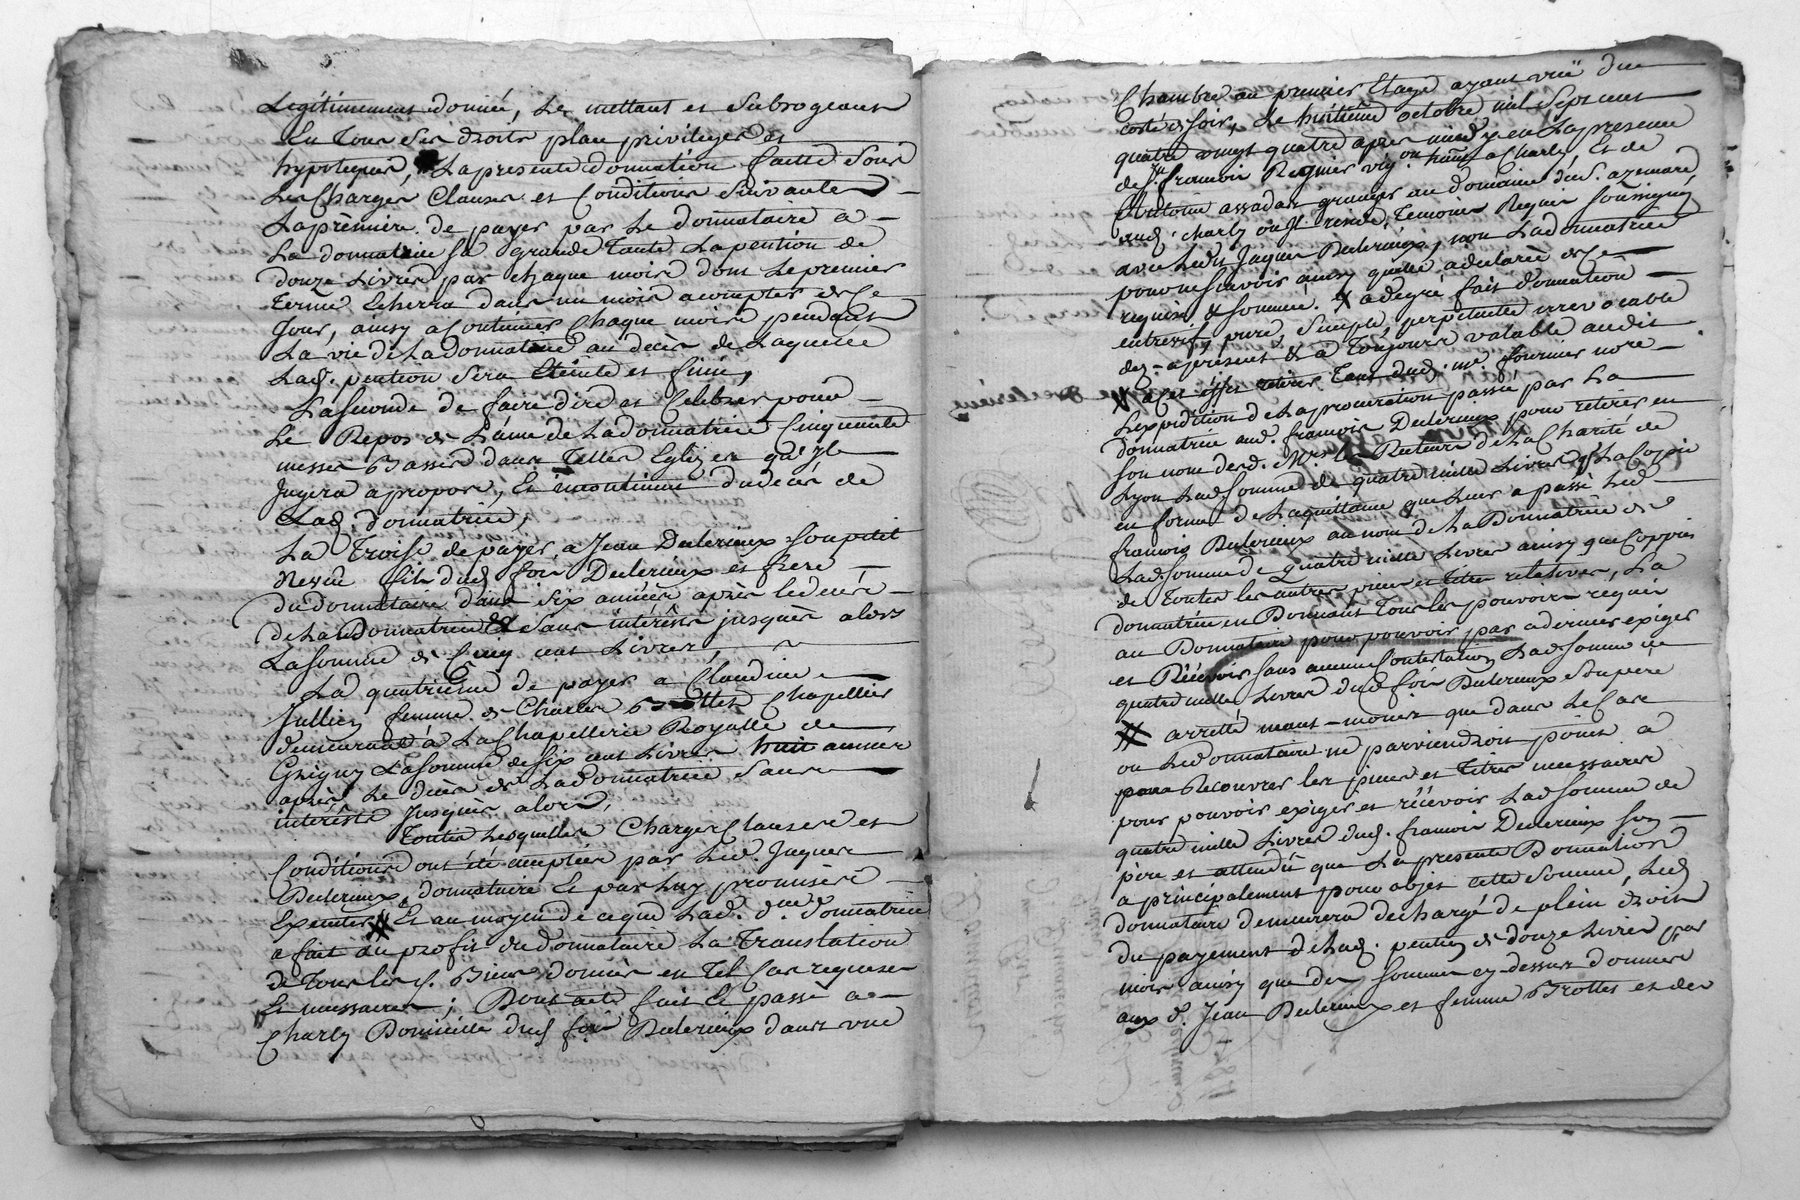 Legitimement donné, Le mettant et Subrogeant
En Tous Ses droits place privileges et
hypoteques, La presente donnation faitte Sous
Les Charges Clauses et Conditions Suivantes
La première de payer par Le donnataire a
La donnatrice Sa grande Tante La pention de
douze Livres par chaque mois dont Le premier
terme Echerra dans un mois a compter de Ce
Jour, ainsy a Continuer Chaque mois pendant
La vie de La donnatrice au deces de Laquelle
Lad. pention Sera Eteinte et finie,
La Seconde de faire dire et Celebrer pour
Le Repos de L'ame de La donnatrice Cinquante
messes Basses dans Telles Eglises qu'il
Jugera apropos, Et incontinent du deces de
Lad. donnatrice,
La Trois.e de payer, a Jean Duclerieux Son petit
Neveu fils dud. foin Duclerieux et frere
du donnataire dans Six années après le deces
de La Donnatrice Sans interêts jusques alors
La Somme de Cinq cent Livres,
La quatrieme de payer a Claudine
Jullien femme de Charles Brottet Chapellier
demeurant à La Chapellerie Royalle de
Grigny La Somme de Six cent Livres huit années
après Le deces de La donnatrice Sans
interêts Jusques alors,
Toutes Lesquelles Charges Clauses et
Conditions ont été acceptées par Led. Jaques
Duclerieux, donnataire Et par Luy promises
Executer # Et au moyen de ce que Lad. d.
donnatrice
a fait au profit du donnataire La Translation
de Tous les d. Biens donnés en Tel Cas requise
Et necessaire; Dont acte fait Et passé a
Charly Domicille dud. foin Duclerieux dans une
Chambre au premier Etage ayant vüe du
coté de soir, Le huitieme octobre mil Sept cent
quatre vingt quatre apres midy en La presence
de S.r francois Regnier vig.on hab.t a Charly Et de
Antoine assada granger au domaine du S. azemard
aud. Charly ou Il reside, Temoins Requis Soussignés
avec Ledit Jaques Duclerieux, non La donnatrice
pour ne scavoir ainsy qu'elle a declaré de Ce
requise & Sommée. a degré fait donnation
entrevifs, pure, Simple, perpetuelle irrevocable
des apresent & a Toujours valable audit
# a Cet effet retirer Tant dud. me. fournier no.re
L'expedition de La procuration passée par La
donnatrice aud. francois Duclerieux pour retirer en
Son nom desd. Mrs. Les Recteurs de La Charité de
Lyon Lad. Somme de quatre mille Livres La Copie
en forme de La quittance que Leur a passé Led.
francois Duclerieux au nom de La Donnatrice de
Lad. Somme de Quatre mille Livres ainsy que Coppies
de toutes les autres pieces et titres relatives, La
donnatrice en Donnant Tous les pouvoirs requis
au Donnataire pour pouvoir par a dernier exiger
et Récevoir Sans aucune Contestation Lad. Somme de
quatre mille Livres dud. foin Duclerieux
# arretté
que dans Le Cas
ou Led. donnataire ne parviendroit point a
Recouvrer les pieces et titres necessaires
pour pouvoir exiger et récevoir Lad. Somme de
quatre mille Livres dud. francois Duclerieux Son
père et attendû que La presente Donnation
a principalement pour objet cette Somme, Led.
donnataire demeurera dechargé de plein droit
du payement de Lad. pention de douze Livres par
mois ainsy que des Sommes cy-dessus données
aux d. Jean Duclerieux et femme Brottet et des